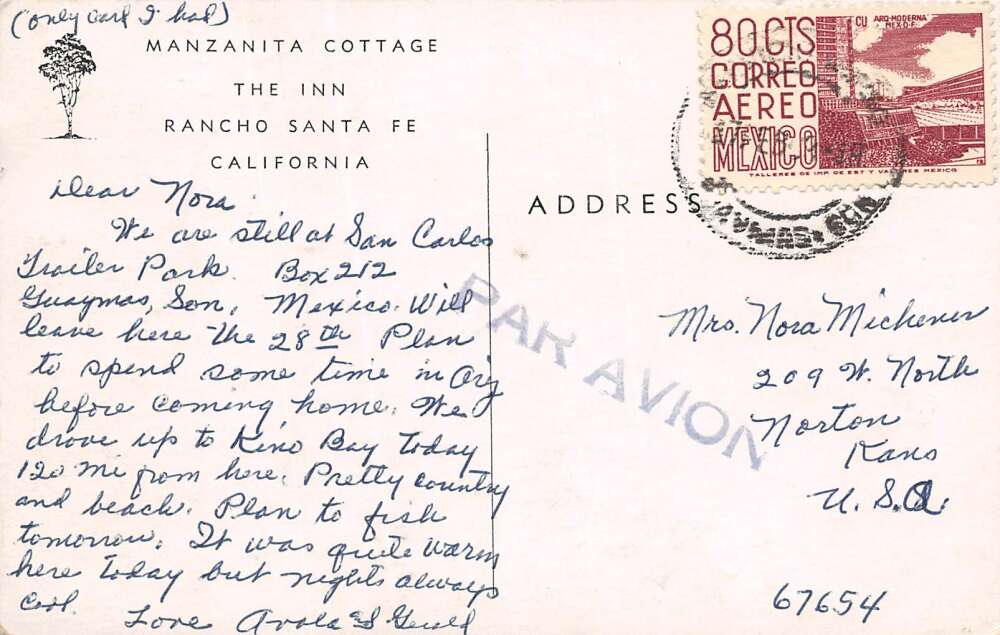 (only card I had)
MANZANITA COTTAGE
THE INN
RANCHO SANTA FE
CALIFORNIA
Dear Nora
We are still at San Carlos
Trailer Park. Box 212
Guaymas, Son, Mexico. Will
leave here the 28th Plan
to spend some time in Ariz
before coming home. We
drove up to Kino Bay today
120 mi from here. Pretty country
and beach. Plan to fish
tomorrow. It was quite warm
here today but nights always
cool.
Love Avola and Gerald
80 CTS
CORREO
AEREO
MEXICO
CU ARQ-MODERNA
MEX-D-F-
TALLERES DE IMP. DE EST Y VALORES MEXICO
GUAYMAS, SON
ADDRESS
PAR AVION
Mrs. Nora Michener
209 W. North
Norton
Kans
U.S.A.
67654